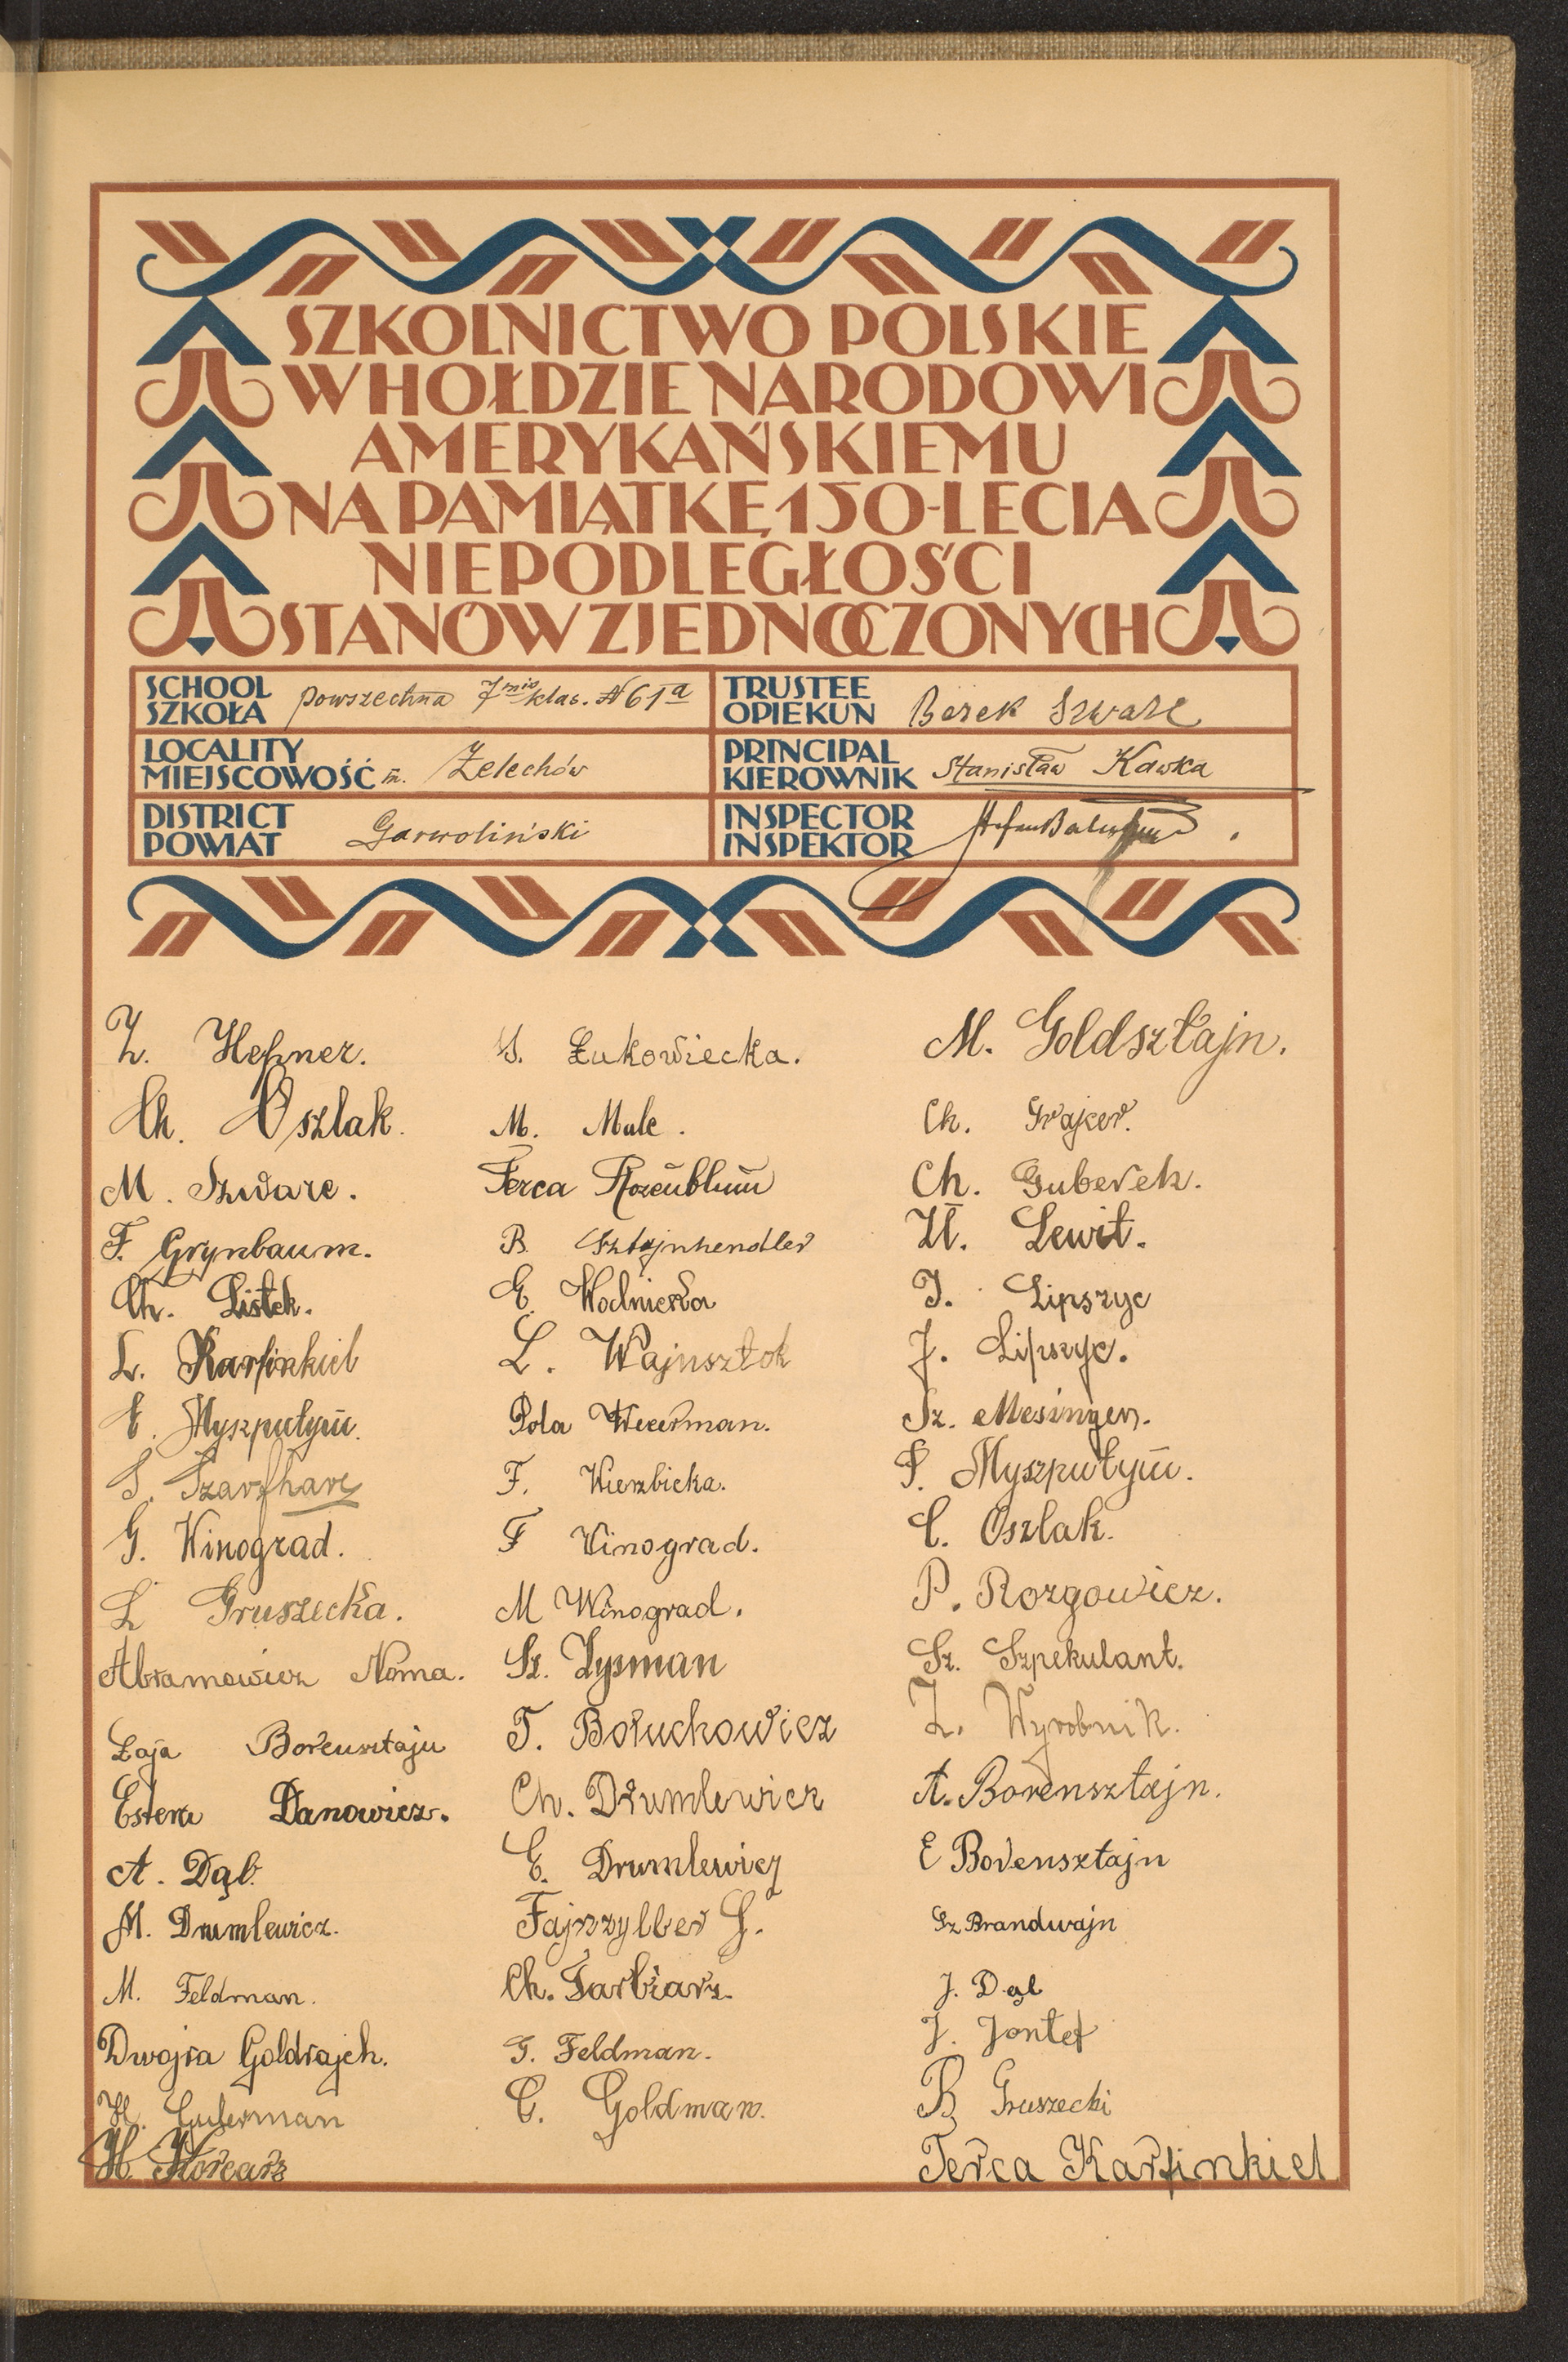 SZKOLNICTWO POLSKIE
W HOŁDZIE NARODOWI
AMERYKAŃSKIEMU
NA PAMIĄTKĘ 150-LECIA
NIEPODLEGŁOŚCI
STANÓW ZJEDNOCZONYCH
SCHOOL
SZKOŁA powszechna 7mio klas. № 61a
TRUSTEE
OPIEKUN Berek Szwarc
LOCALITY
MIEJSCOWOŚĆ m. Żelechów
PRINCIPAL
KIEROWNIK Stanisław Kawka
DISTRICT
POWIAT Garwoliński
INSPECTOR
INSPEKTOR Stefan
Ch. Oszlak.
M. Szwarc.
F. Grynbaum.
Ch. Listek.
L. Karfinkiel
E. Myszputym.
S. Szarfharc
G. Winograd.
L Gruszecka.
Abramowicz Noma.
Łaja Borensztajn
Estera Danowicz.
A. Dąb.
M. Drumlewicz.
M. Feldman.
Dwojra Goldrajch.
H. Guterman
H. Korcarz
S. Łukowiecka.
M. Male.
Terca Rozenblum
B. Sztajnhendler
E. Wodnicka
L. Wajnsztok
Pola Wecerman.
F. Wierzbicka.
F Winograd.
M Winograd.
Sz. Zysman
T. Boruchowicz
Ch. Drumlewicz
E. Drumlewicz
Fajnzylber S.
Ch. Farbiarz.
G. Feldman.
C. Goldman.
M. Goldsztajn.
Ch. Grajcer.
Ch. Guberek.
H. Lewit.
I. Lipszyc
J. Lipszyc.
Sz. Mesinger.
P. Myszputym.
C. Oszlak.
P. Rozgowicz.
Sz. Szpekulant.
Z. Wyrobnik.
A. Borensztajn.
E Borensztajn
Sz Brandwajn
J. Dąb
J. Jontef
B Gruszecki
Terca Karfinkiel